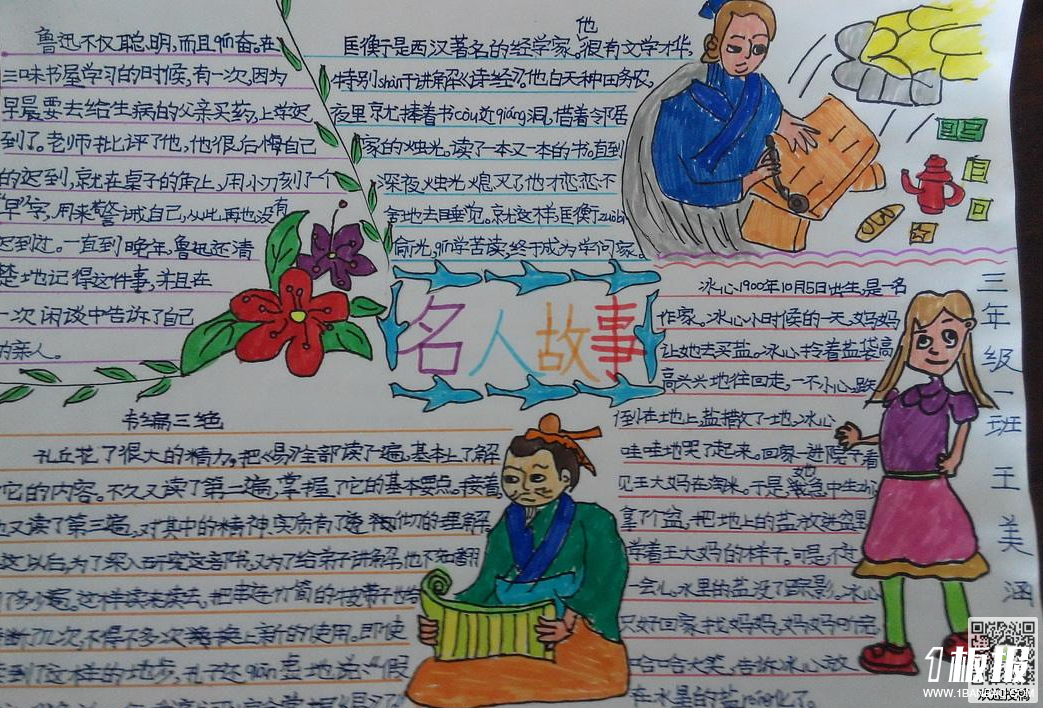 鲁迅不仅聪明,而且勤奋。在
三味书屋学习的时候,有一次,因为
早晨要去给生病的父亲买药,上学迟
到了。老师批评了他,他很后悔自己
的迟到,就在桌子的角上,用小刀刻了个
"早"字,用来警诫自己,从此再也没有
迟到过。一直到晚年,鲁迅还清
楚地记得这件事,并且在
一次闲谈中告诉了自己
的亲人。
匡衡是西汉著名的经学家。他很有文学才华,
特别shàn于讲解《诗经》。他白天种田务农,
夜里就捧着书còu近qiáng洞,借着邻居
家的烛光。读了一本又一本的书。直到
深夜烛光熄灭了他才恋恋不
舍地去睡觉。就这样匡衡zuobi
偷光,勤学苦读,终于成为学问家。
名人故事
冰心1900年10月5日出生,是一名
作家。冰心小时候的一天,妈妈
让她去买盐。冰心拎着盐袋高
高兴兴地往回走,一不小心,跌
倒在地上,盐撒了一地,冰心
哇哇地哭了起来。回家一进院子看
见王大妈在淘米。于是,她急中生
拿了个盆,把地上的盐放进盆里
学着王大妈的样子。可是,不过
一会儿,水里的盐没了踪影。冰心
只好回家找妈妈,妈妈听完
哈哈大笑,告诉冰心放
在水里的盐róng化了。
三年级一班王美涵
韦编三绝
孔丘花了很大的精力,把《易》全部读了一遍,基本上了解
它的内容。不久又读了第二遍,掌握了它的基本要点。接着
又读了第三遍,对其中的精神、实质有了透彻的理解
这以后,为了深入研究这部书,又为了给弟子讲解,他不知翻
了多少遍。这样读来读去,把串连竹简的皮带子也给
断了几次,不得不多次换上新的使用。即使
到了这样的地步,孔子还qiān虚地说:"假
1板报
WWW.1BANBAO.COM
欢迎投稿